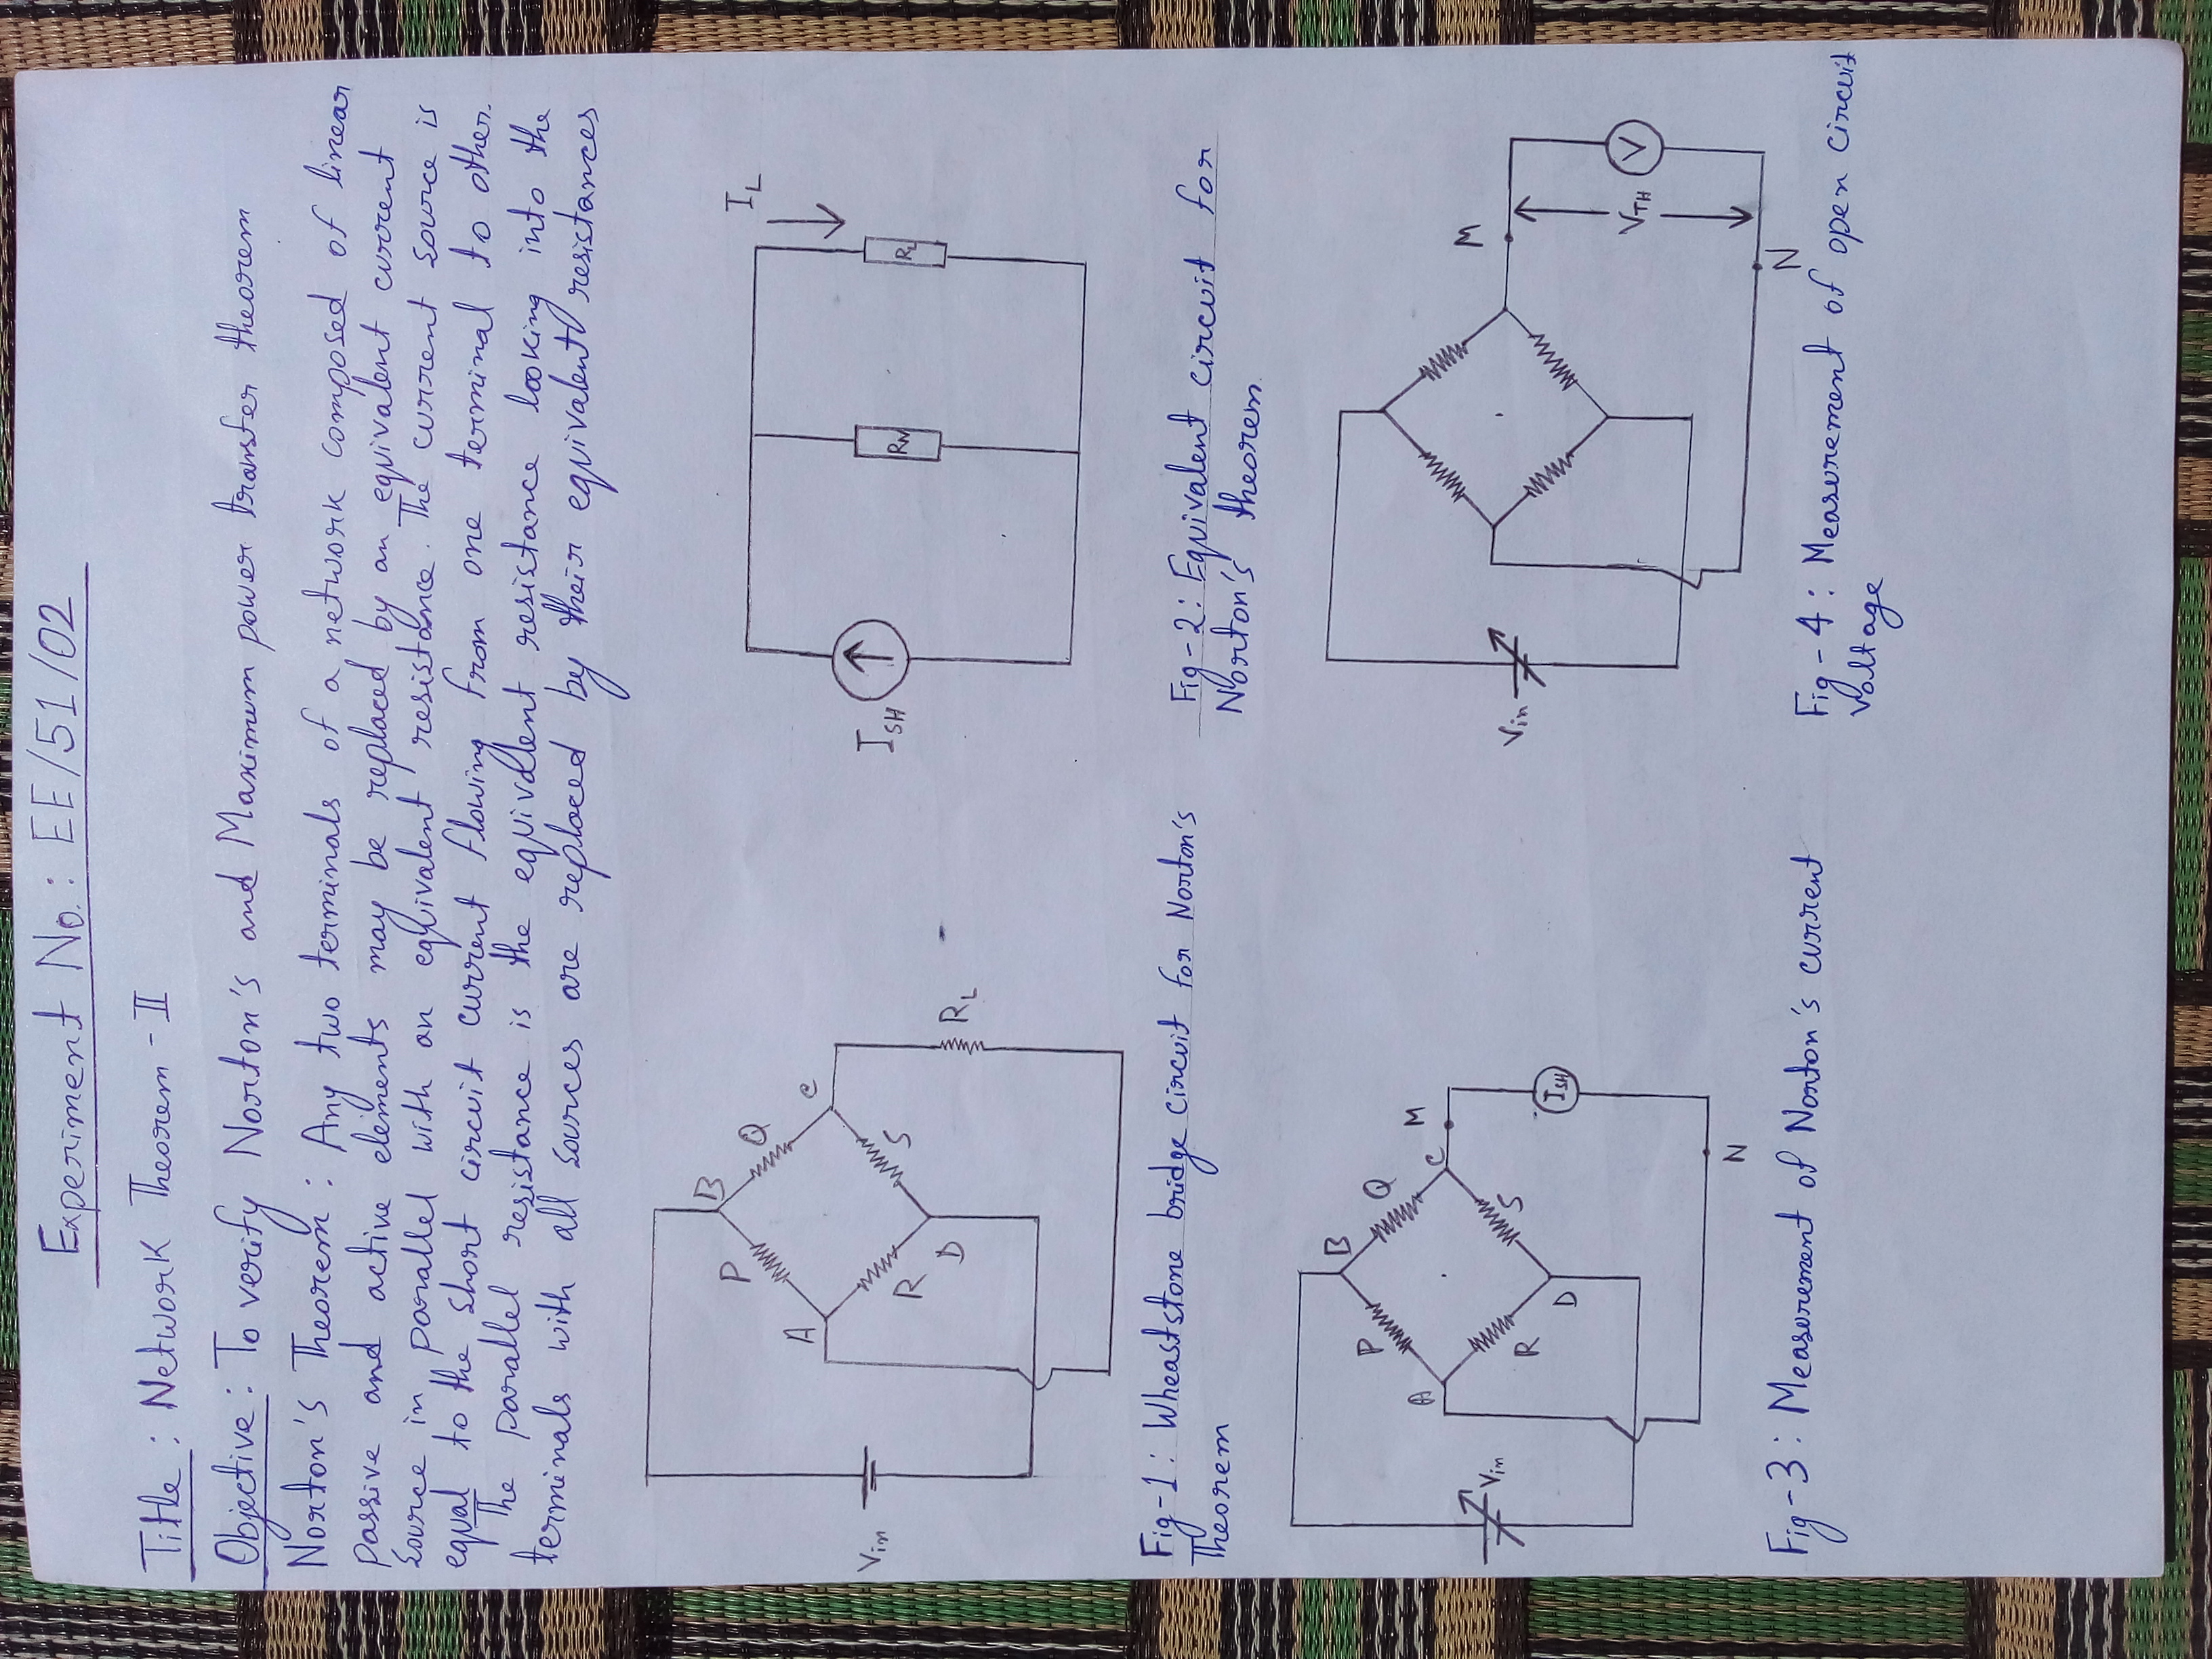 Experiment No.: EE/51/02
Title: Network Theorem - II
Objective: To verify Norton's and Maximum power transfer theorem
Norton's Theorem: Any two terminals of a network composed of linear
passive and active elements may be replaced by an equivalent current
source in parallel with an equivalent resistance. The current source is
equal to the short circuit current flowing from one terminal to other.
The parallel resistance is the equivalent resistance looking into the
terminals with all sources are replaced by their equivalent resistances
B
P
Q
A
C
Vin
R
S
D
RL
IL
ISH
RN
RL
Fig-1: Wheaststone bridge circuit for Norton's
Theorem
Fig-2: Equivalent circuit for
Norton's theorem.
B
P
Q
A
C
M
Vin
R
S
D
ISH
N
M
Vin
VTH
V
N
Fig-3: Measurement of Norton's current
Fig-4: Measurement of open circuit
voltage